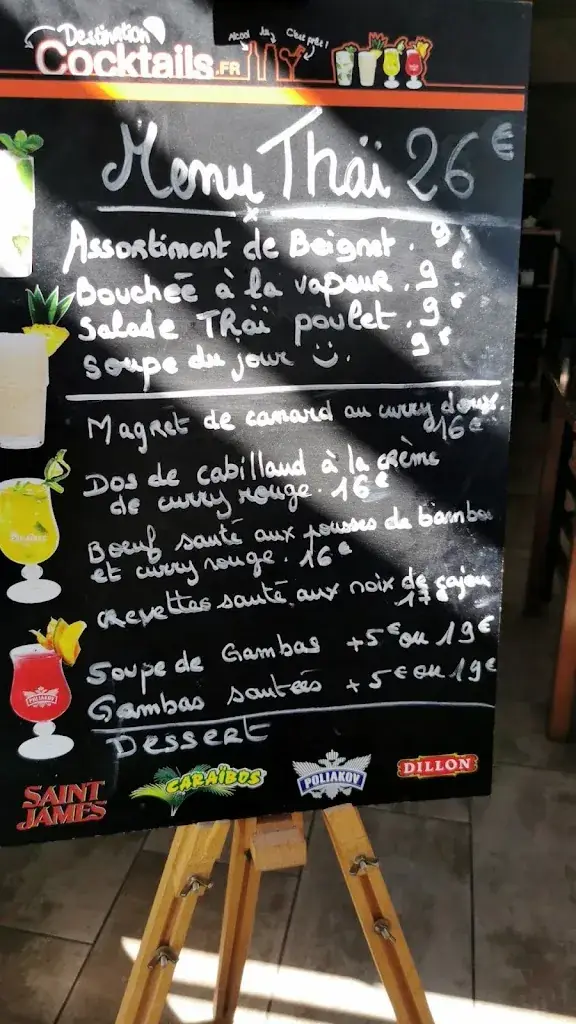 Destination
Cocktails.FR
Alcool Jus C'est prêt !
Menu Thaï 26€
Assortiment de Beignet . 9€
Bouchée à la vapeur . 9€
Salade Thaï poulet . 9€
Soupe du jour ☺. 9€
Magret de canard au curry doux.
16€
Dos de cabillaud à la crème
de curry rouge. 16€
Bœuf sauté aux pousses de bambou
et curry rouge. 16€
Crevettes sauté aux noix de cajou
17€
Soupe de Gambas +5€ ou 19€
Gambas sautées +5€ ou 19€
Dessert
POLIAKOV
SAINT
JAMES
CARAÏBOS
POLIAKOV
DILLON